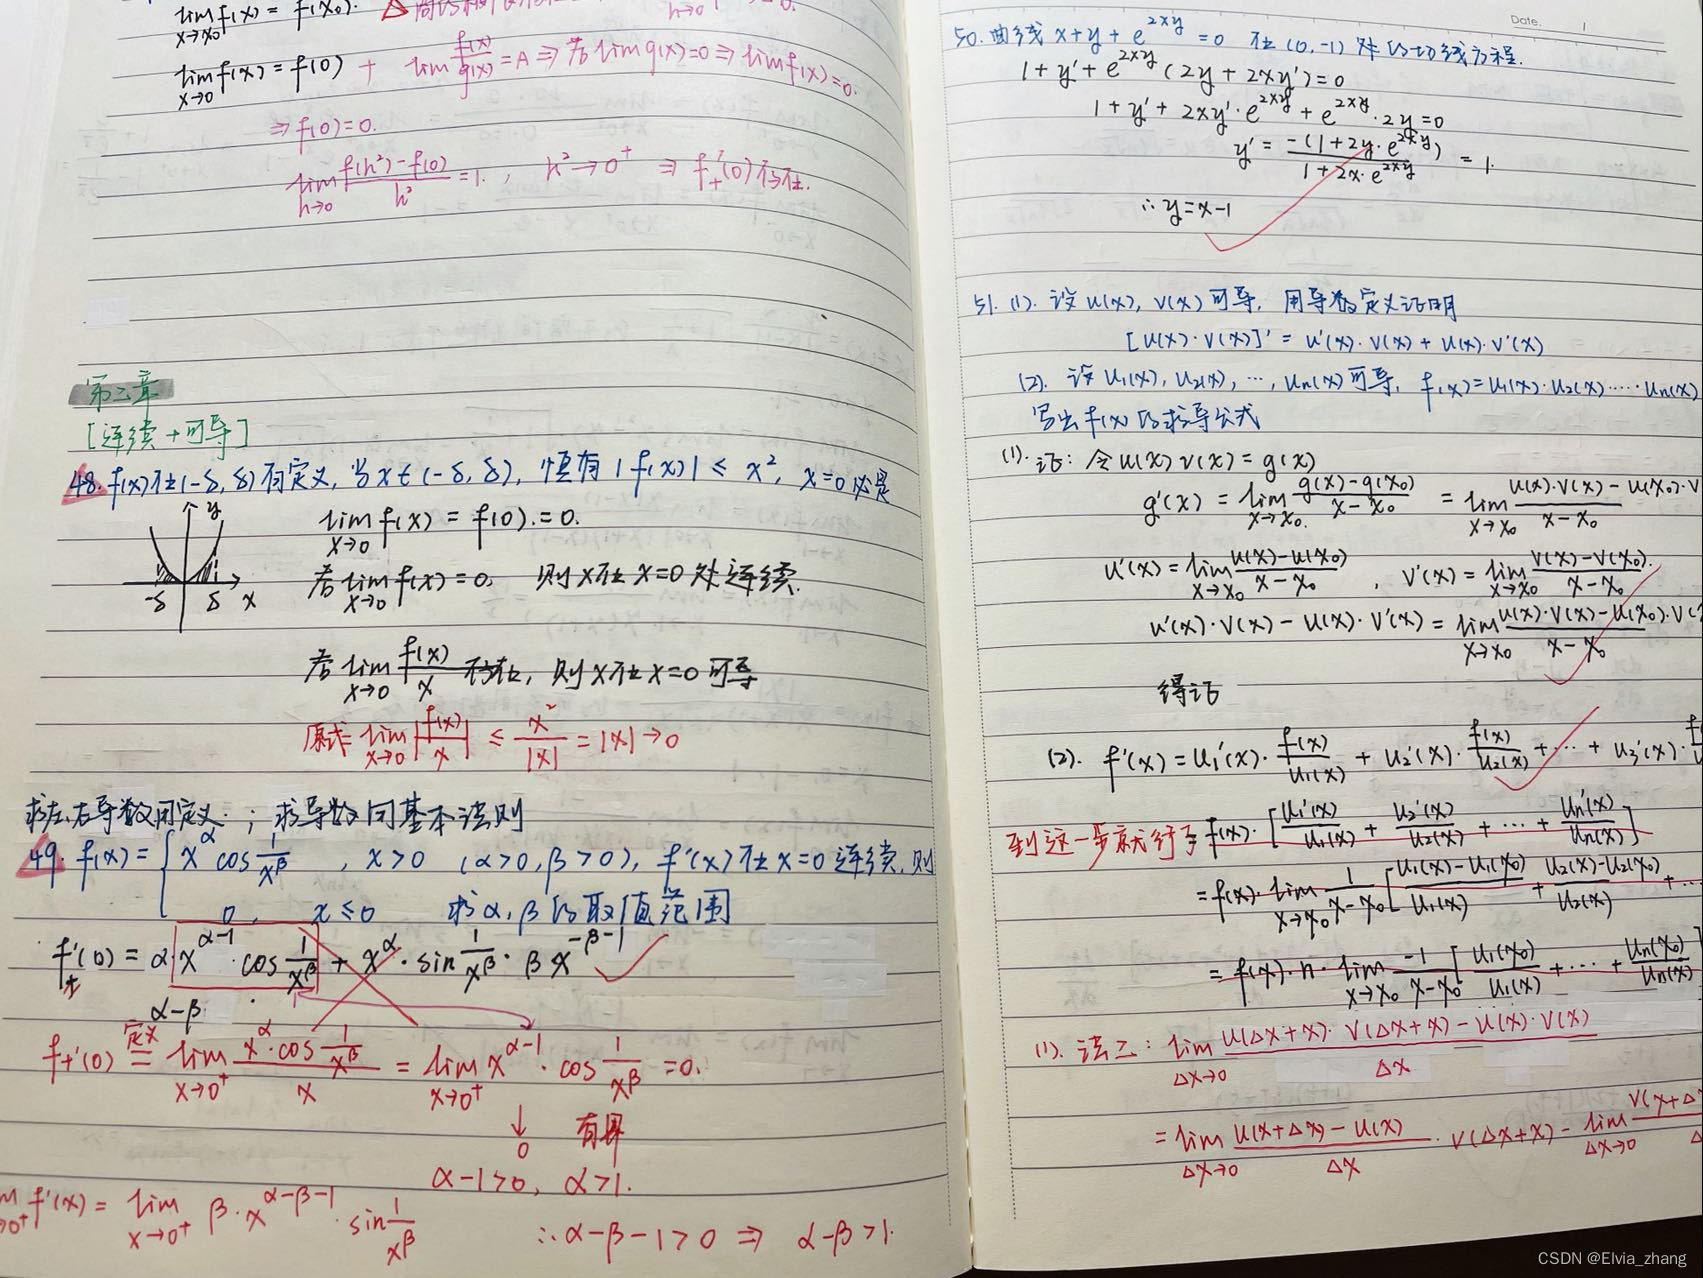 lim x→x₀ f(x) = f(x₀).
lim x→0 f(x) = f(0) + lim f(x)/g(x) = A ⇒ 若 lim g(x)=0 ⇒ lim f(x)=0.
⇒ f(0)=0.
lim h→0 (f(h²)-f(0))/h² = 1. , h²→0⁺ ⇒ f₊'(0)存在.
第二章
[连续+可导]
48. f(x)在(-δ, δ)有定义, 当x∈(-δ, δ), 恒有|f(x)| ≤ x², x=0必是
y
-δ δ x
lim x→0 f(x) = f(0). = 0.
若 lim x→0 f(x) = 0. 则x在x=0处连续.
若 lim x→0 f(x)/x 存在, 则x在x=0可导
原式= lim x→0 |f(x)/x| ≤ x²/|x| = |x| → 0
求左、右导数用定义. ; 求导数用基本法则
49. f(x) = { x^α cos 1/x^β , x>0 (α>0, β>0), f'(x)在x=0连续, 则
0, x≤0 求α, β的取值范围
f₊'(0) = α·x^(α-1)·cos 1/x^β + x^α·sin 1/x^β · β x^(-β-1)
α-β
f₊'(0) 定义= lim x→0⁺ (x^α·cos 1/x^β)/x = lim x→0⁺ x^(α-1)·cos 1/x^β = 0.
↓ 0 有界
α-1>0, α>1.
f'(x) = lim x→0⁺ β·x^(α-β-1)·sin 1/x^β
∴ α-β-1>0 ⇒ α-β>1.
Date.
50. 曲线 x+y+e^(2xy) = 0 在(0,-1)处的切线方程.
1+y'+e^(2xy)(2y+2xy')=0
1+y'+2xy'·e^(2xy)+e^(2xy)·2y=0
y' = -(1+2y·e^(2xy))/(1+2x·e^(2xy)) = 1.
∴ y=x-1
51. (1). 设u(x), v(x)可导, 用导数定义证明
[u(x)·v(x)]' = u'(x)·v(x)+u(x)·v'(x)
(2). 设u₁(x), u₂(x), ⋯, un(x)可导, f(x)=u₁(x)·u₂(x)⋯⋯un(x)
写出f(x)的求导公式
(1). 证: 令u(x)v(x) = g(x)
g'(x) = lim x→x₀ (g(x)-g(x₀))/(x-x₀) = lim x→x₀ (u(x)·v(x)-u(x₀)·v)/(x-x₀)
u'(x) = lim x→x₀ (u(x)-u(x₀))/(x-x₀) , v'(x) = lim x→x₀ (v(x)-v(x₀))/(x-x₀).
u'(x)·v(x) - u(x)·v'(x) = lim x→x₀ (u(x)·v(x)-u(x₀)·v()/(x-x₀)
得证
(2). f'(x) = u₁'(x)·f(x)/u₁(x) + u₂'(x)·f(x)/u₂(x) + ⋯ + u₃'(x)·
到这一步就行了 = f(x)·[u₁'(x)/u₁(x) + u₂'(x)/u₂(x) + ⋯ + un'(x)/un(x)]
= f(x)·lim x→x₀ 1/(x-x₀) [(u₁(x)-u₁(x₀))/u₁(x) + (u₂(x)-u₂(x₀))/u₂(x) + ⋯
= f(x)·n·lim x→x₀ -1/(x-x₀) [u₁(x₀)/u₁(x) + ⋯ + un(x₀)/un(x)]
(1). 法二: lim Δx→0 (u(Δx+x)·v(Δx+x)-u(x)·v(x))/Δx
= lim Δx→0 (u(x+Δx)-u(x))/Δx · v(Δx+x) - lim Δx→0 v(x+Δ
CSDN @Elvia_zhang